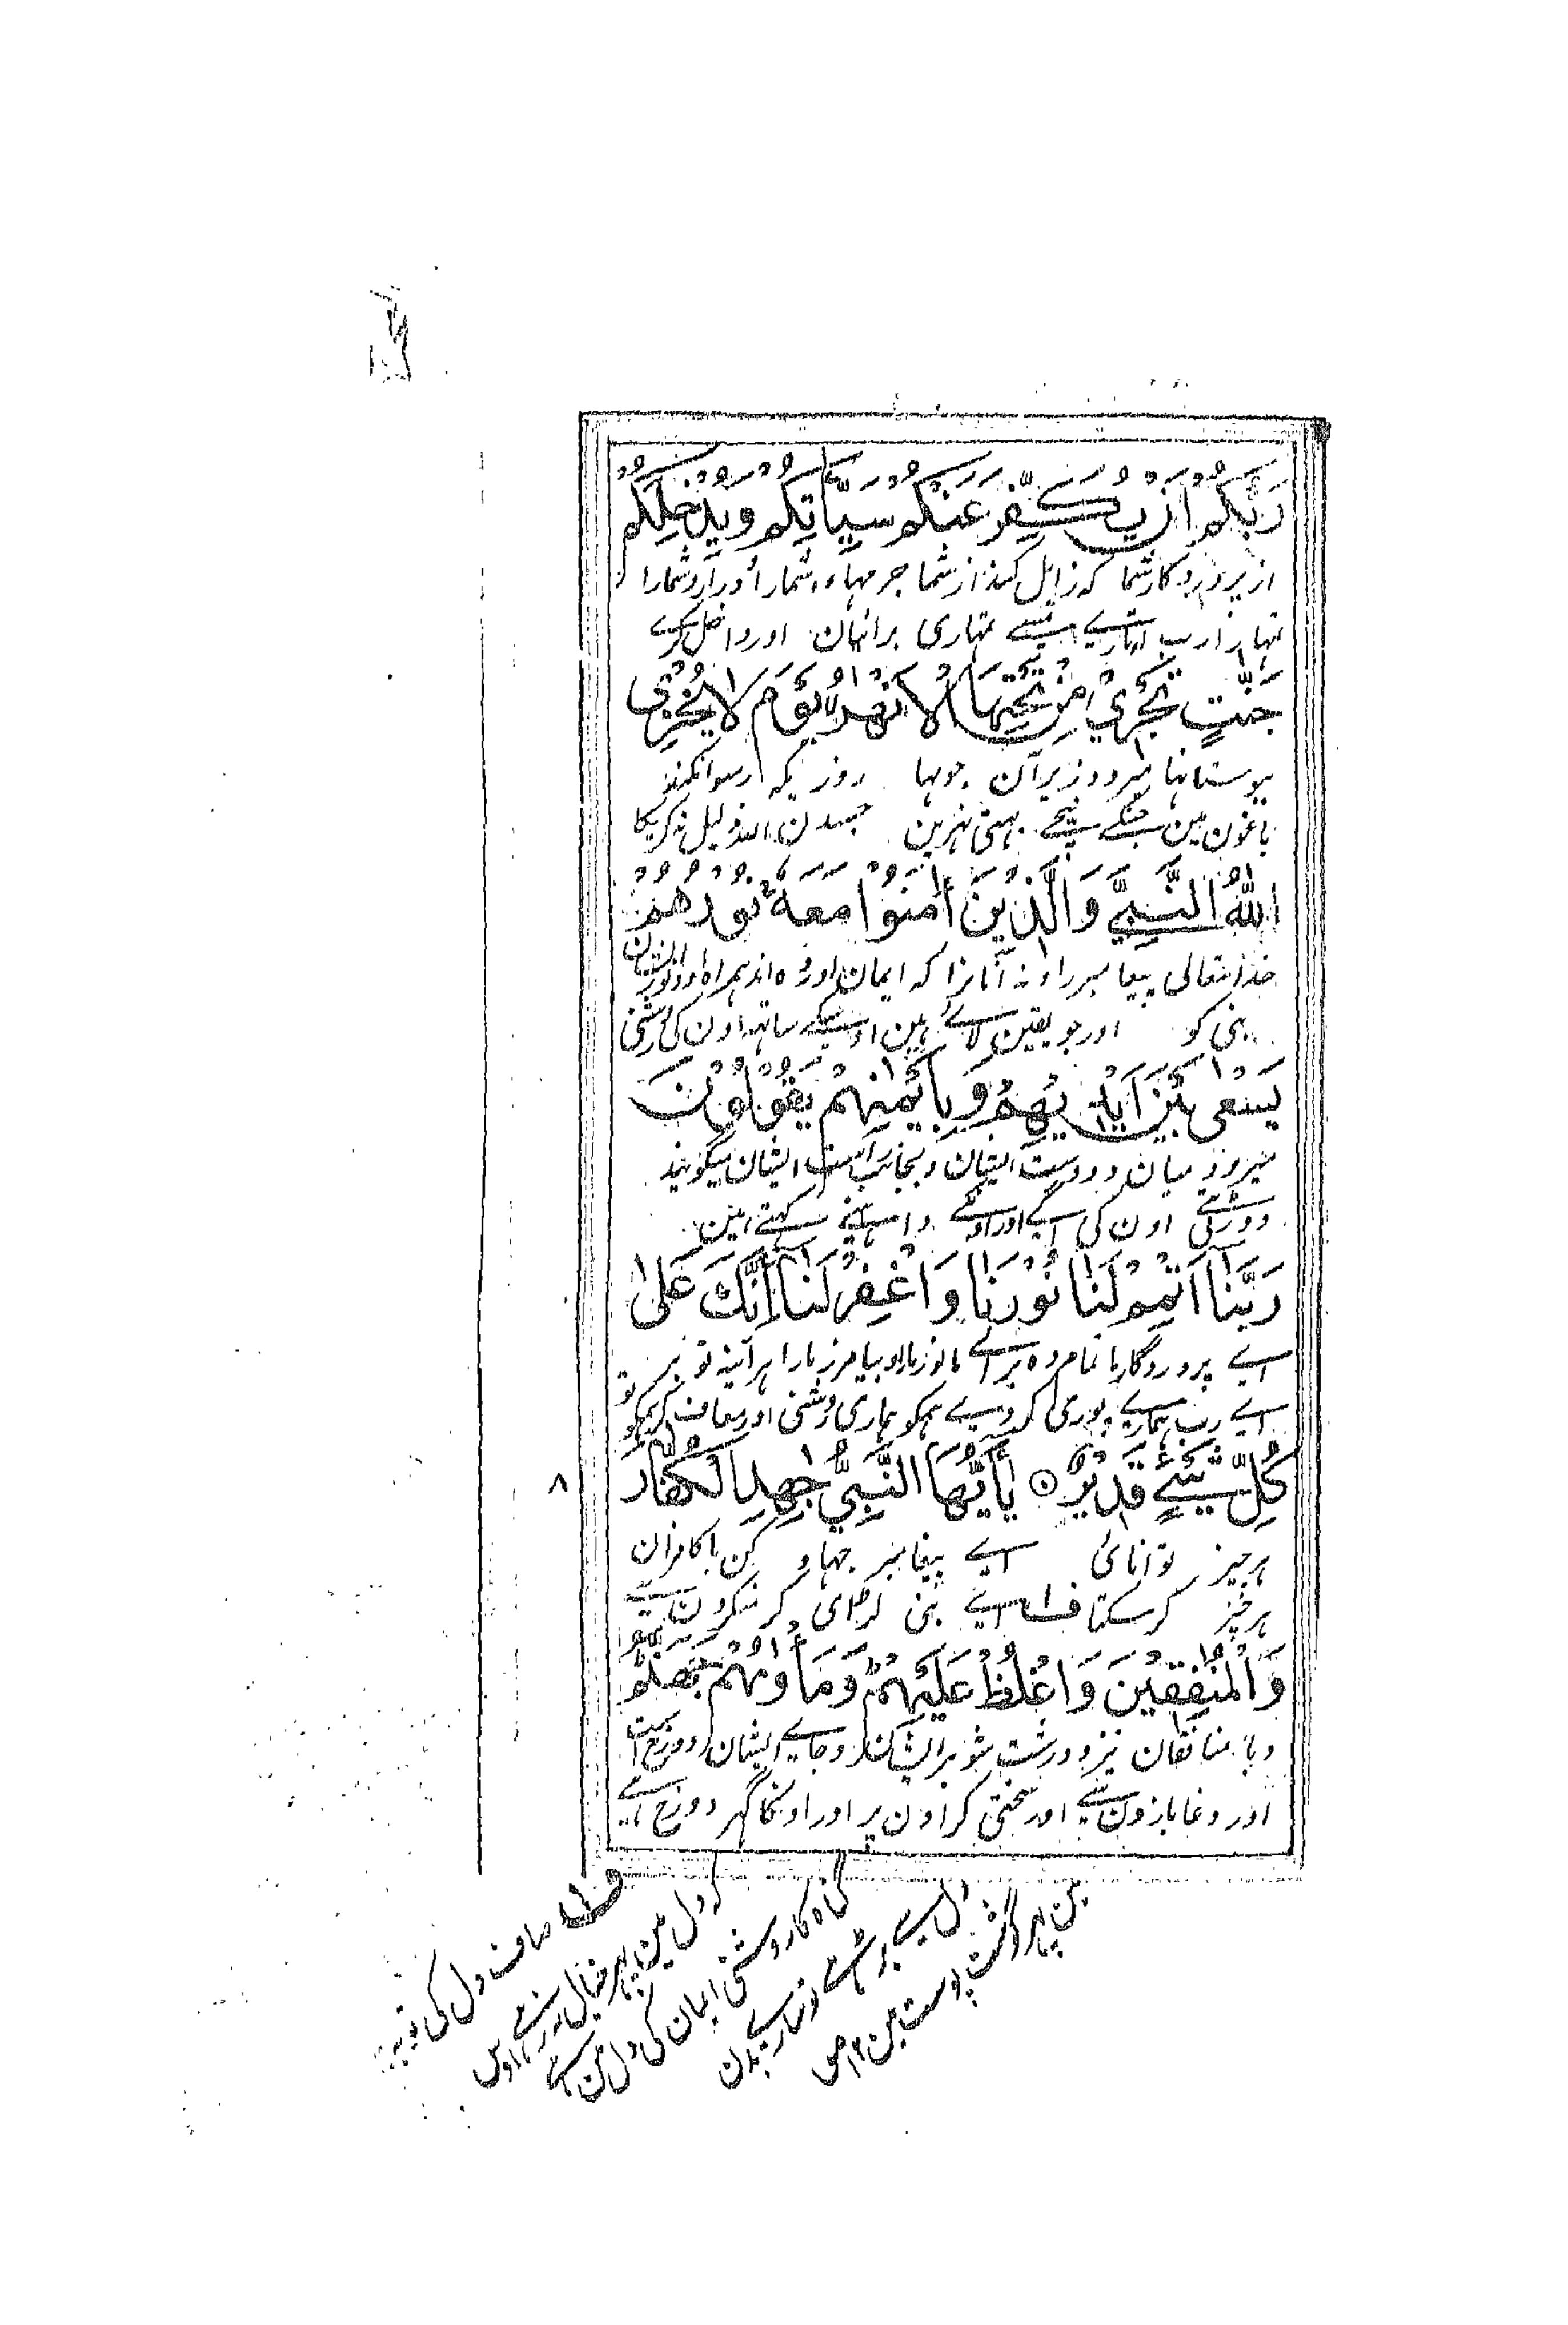 رَبُّكُمْ اَنْ يُّكَفِّرَ عَنْكُمْ سَيِّاٰتِكُمْ وَيُدْخِلَكُمْ
از پروردگار شما که زایل کند از شما جرمهاء شمارا و در آرد شمارا
تمہارا رب اتارے تمسے تمہاری برائیان اور داخل کرے
جَنّٰتٍ تَجْرِيْ مِنْ تَحْتِهَا الْاَنْهٰرُ يَوْمَ لَا يُخْزِى
ببوستانها میرود زیر آن جویها روزیکه رسوا نکند
باغون مین جنکے نیچے بہتی نہرین جسدن اللہ ذلیل نہ کریگا
اللّٰهُ النَّبِيَّ وَالَّذِيْنَ اٰمَنُوْا مَعَهٗ نُوْرُهُمْ
خدایتعالی پیغامبر را و نه آنانرا که ایمان آورده اند همراه او نور ایشان
نبی کو اور جو یقین لائے ہین اوسکے ساتہہ اون کی روشنی
يَسْعٰى بَيْنَ اَيْدِيْهِمْ وَبِاَيْمٰنِهِمْ يَقُوْلُوْنَ
میرود میان دو دست ایشان و بجانب راست ایشان میگویند
دوڑتی اون کی آگے اور اونکے داہنے کہتے ہین
رَبَّنَآ اَتْمِمْ لَنَا نُوْرَنَا وَاغْفِرْ لَنَا اِنَّكَ عَلٰى
اے پروردگار ما تمام ده براے ما نور مارا و بیامرز مارا هر آئینه تو بر
اے رب ہمارے پوری کردے ہمکو ہماری روشنی اور معاف کر ہمکو تو
كُلِّ شَيْءٍ قَدِيْرٌ ۝ يٰٓاَيُّهَا النَّبِيُّ جٰهِدِ الْكُفَّارَ
۸
هرچیز توانائی اے پیغامبر جهاد کن با کافران
ہرچیز کرسکتا ف۱ اے نبی لڑائی کر منکرون سے
وَالْمُنٰفِقِيْنَ وَاغْلُظْ عَلَيْهِمْ وَمَاْوٰىهُمْ جَهَنَّمُ
و با منافقان نیز و درشت شو بر ایشان و جاے ایشان دوزخ است
اور دغابازون سے اور سختی کر اون پر اور اونکا گہر دوزخ ہے
ف۱ صاف دل کی توبہ
کہ دل مین پہر خیال نہ رہے اوس
گناہ کا روشنی ایمان کی دل مین ہے
دل سے بڑہے تو سارے بدن
مین پہر گوشت پوست مین ۱۲ ص